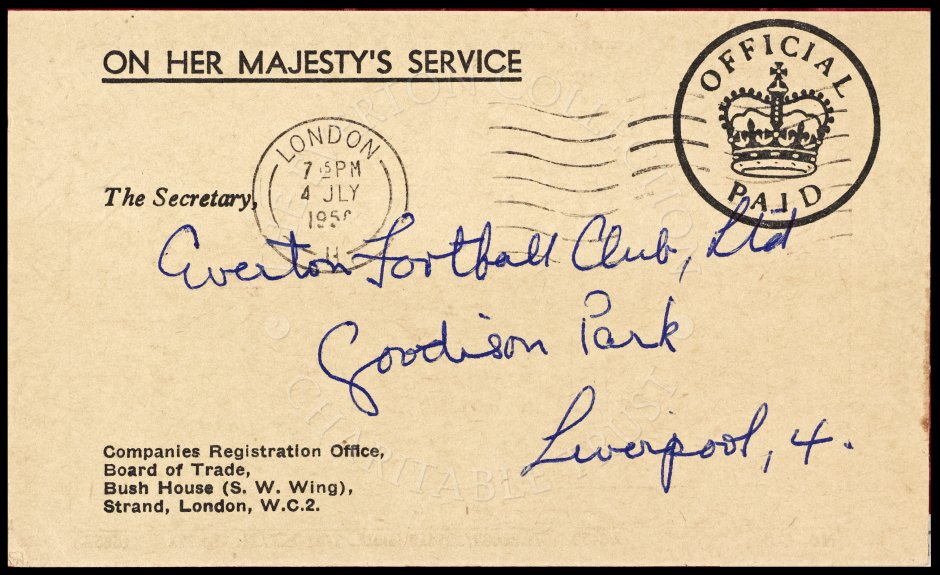 ON HER MAJESTY'S SERVICE
OFFICIAL
PAID
LONDON
7 PM
4 JLY
The Secretary,
Everton Football Club, Ltd
Goodison Park
Liverpool, 4.
Companies Registration Office,
Board of Trade,
Bush House (S. W. Wing),
Strand, London, W.C.2.
EVERTON COLLECTION
CHARITABLE TRUST